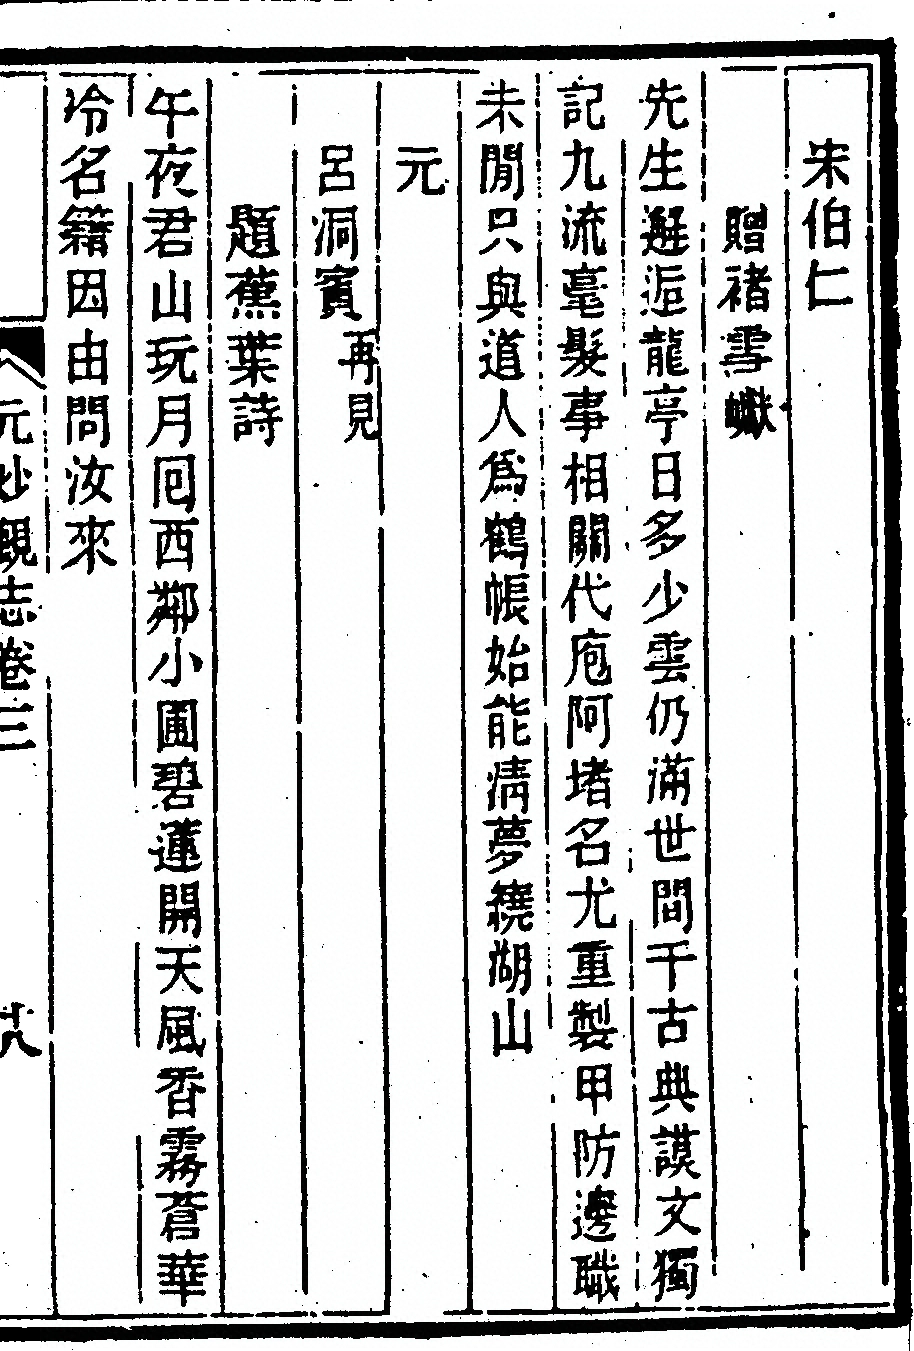 宋伯仁
贈褚雪巘
先生邂逅龍亭日多少雲仍滿世間千古典謨文獨
記九流毫髮事相關代庖阿堵名尤重製甲防邊職
未閒只與道人爲鶴帳始能清夢繞湖山
元
呂洞賓再見
題蕉葉詩
午夜君山玩月回西鄰小圃碧蓮開天風香霧蒼華
冷名籍因由問汝來
元妙觀志卷三
十八